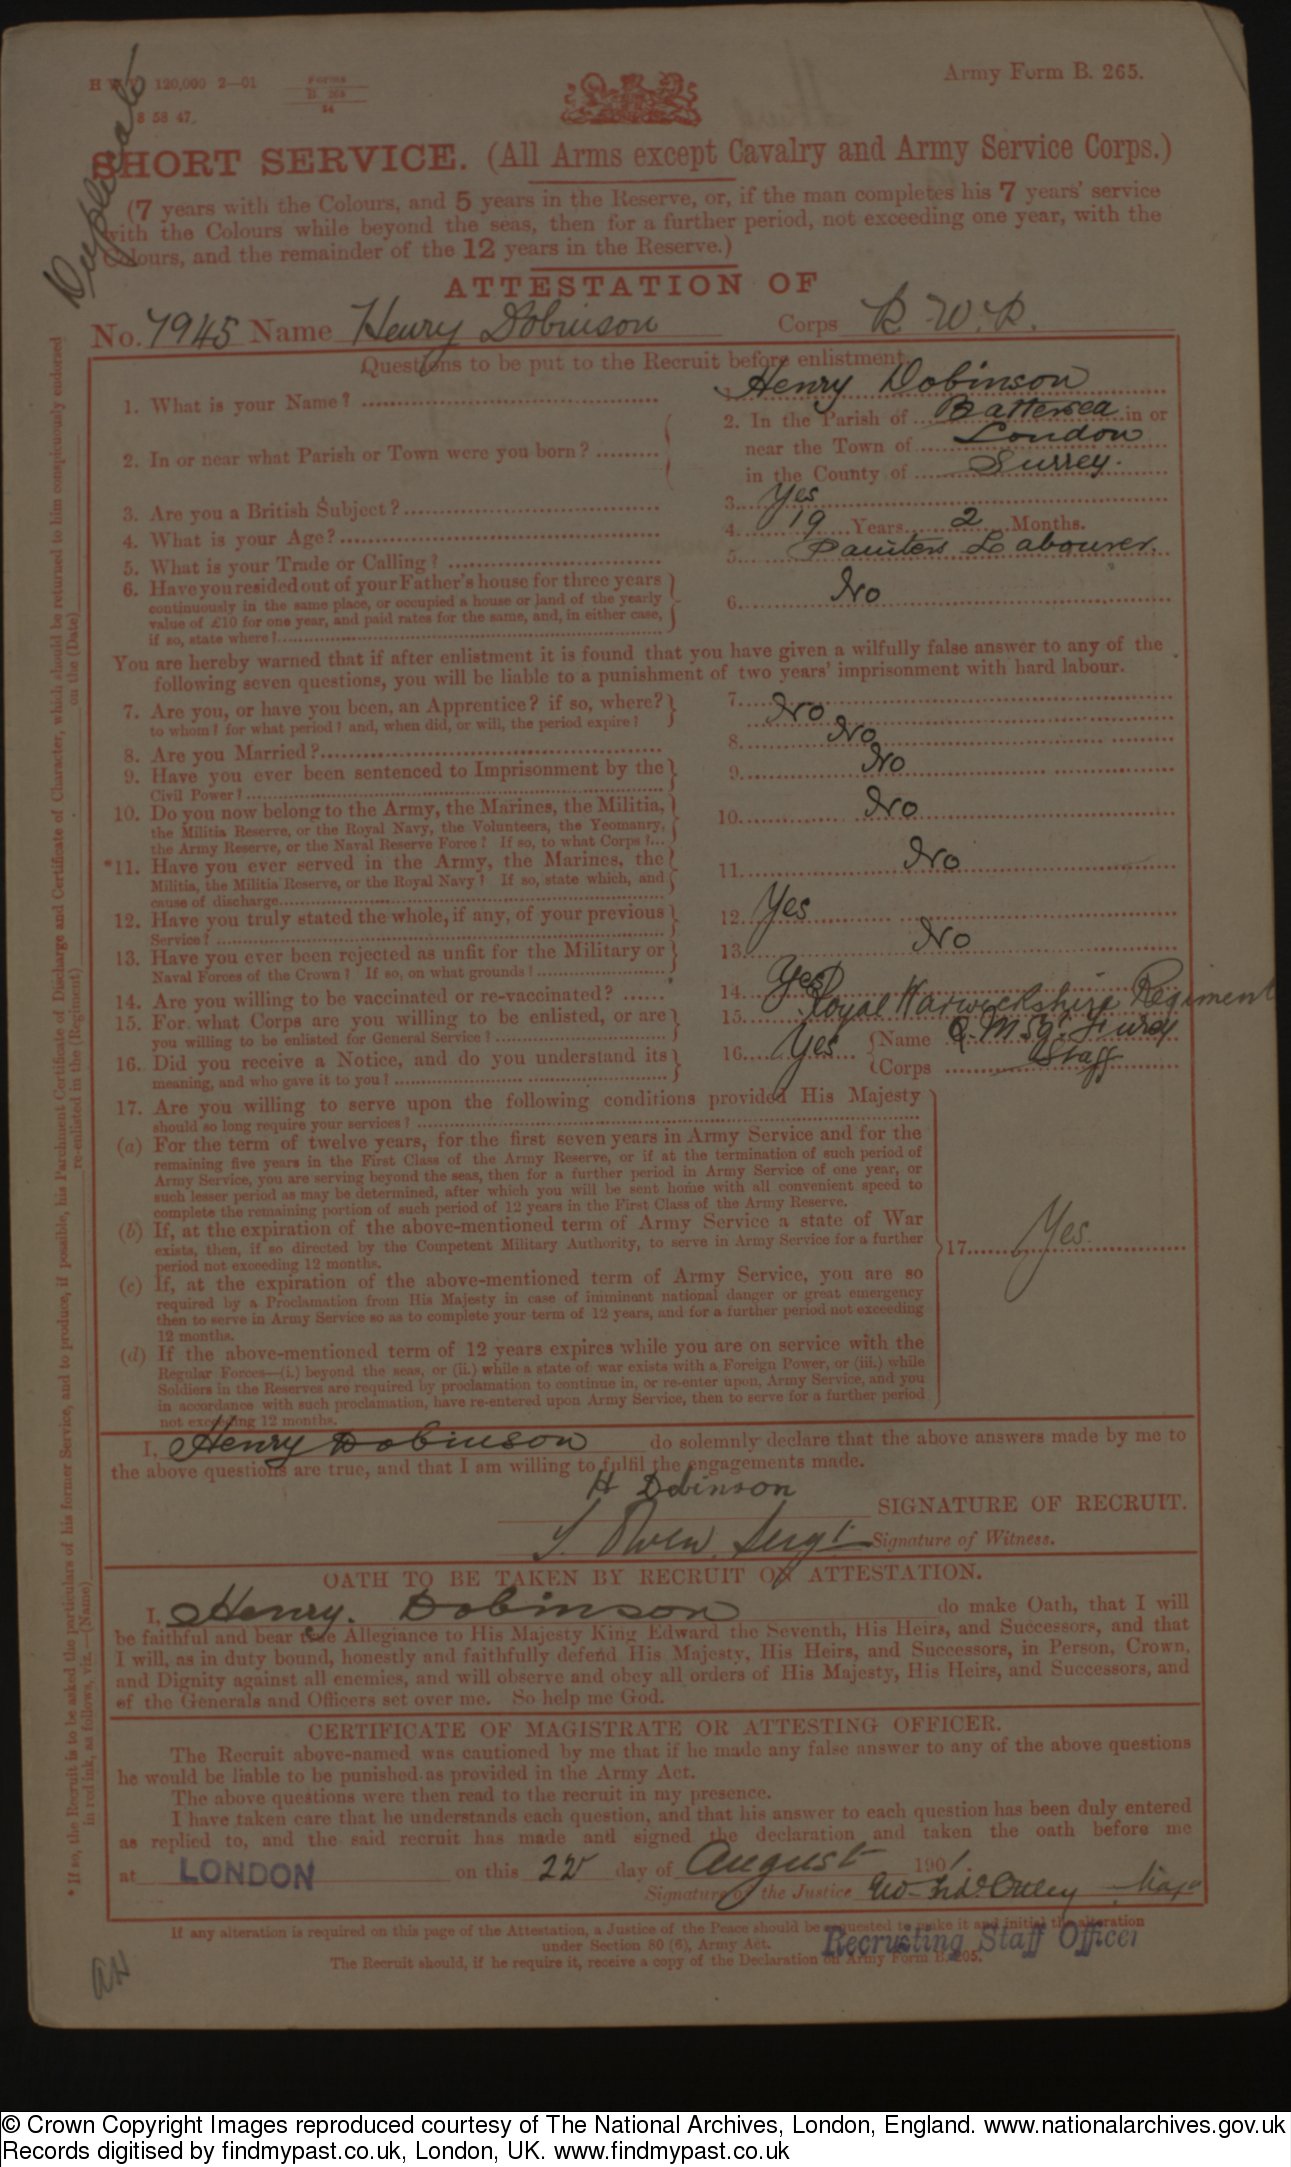 Duplicate
H W V 120,000 2—01
FORMS
B 265
54
8 58 47.
Army Form B. 265.
SHORT SERVICE. (All Arms except Cavalry and Army Service Corps.)
(7 years with the Colours, and 5 years in the Reserve, or, if the man completes his 7 years' service
with the Colours while beyond the seas, then for a further period, not exceeding one year, with the
Colours, and the remainder of the 12 years in the Reserve.)
ATTESTATION OF
No. 7945 Name Henry Dobinson Corps R.W.R.
Questions to be put to the Recruit before enlistment.
1. What is your Name? 1. Henry Dobinson
2. In or near what Parish or Town were you born? 2. In the Parish of Battersea in or
near the Town of London
in the County of Surrey.
3. Are you a British Subject? 3. Yes
4. What is your Age? 4. 19 Years 2 Months.
5. What is your Trade or Calling? 5. Painters Labourer.
6. Have you resided out of your Father's house for three years
continuously in the same place, or occupied a house or land of the yearly
value of £10 for one year, and paid rates for the same, and, in either case,
if so, state where? 6. No
You are hereby warned that if after enlistment it is found that you have given a wilfully false answer to any of the
following seven questions, you will be liable to a punishment of two years' imprisonment with hard labour.
7. Are you, or have you been, an Apprentice? if so, where?
to whom? for what period? and, when did, or will, the period expire? 7. No
8. Are you Married? 8. No
9. Have you ever been sentenced to Imprisonment by the
Civil Power? 9. No
10. Do you now belong to the Army, the Marines, the Militia,
the Militia Reserve, or the Royal Navy, the Volunteers, the Yeomanry,
the Army Reserve, or the Naval Reserve Force? If so, to what Corps? 10. No
*11. Have you ever served in the Army, the Marines, the
Militia, the Militia Reserve, or the Royal Navy? If so, state which, and
cause of discharge 11. No
12. Have you truly stated the whole, if any, of your previous
Service? 12. Yes
13. Have you ever been rejected as unfit for the Military or
Naval Forces of the Crown? If so, on what grounds? 13. No
14. Are you willing to be vaccinated or re-vaccinated? 14. Yes
15. For what Corps are you willing to be enlisted, or are
you willing to be enlisted for General Service? 15. Royal Warwickshire Regiment
16. Did you receive a Notice, and do you understand its
meaning, and who gave it to you? 16. Yes Name Q.M.Sgt.
Corps Staff
17. Are you willing to serve upon the following conditions provided His Majesty
should so long require your services?
(a) For the term of twelve years, for the first seven years in Army Service and for the
remaining five years in the First Class of the Army Reserve, or if at the termination of such period of
Army Service, you are serving beyond the seas, then for a further period in Army Service of one year, or
such lesser period as may be determined, after which you will be sent home with all convenient speed to
complete the remaining portion of such period of 12 years in the First Class of the Army Reserve.
(b) If, at the expiration of the above-mentioned term of Army Service a state of War
exists, then, if so directed by the Competent Military Authority, to serve in Army Service for a further
period not exceeding 12 months.
17. Yes.
(c) If, at the expiration of the above-mentioned term of Army Service, you are so
required by a Proclamation from His Majesty in case of imminent national danger or great emergency
then to serve in Army Service so as to complete your term of 12 years, and for a further period not exceeding
12 months.
(d) If the above-mentioned term of 12 years expires while you are on service with the
Regular Forces—(i.) beyond the seas, or (ii.) while a state of war exists with a Foreign Power, or (iii.) while
Soldiers in the Reserves are required by proclamation to continue in, or re-enter upon, Army Service, and you
in accordance with such proclamation, have re-entered upon Army Service, then to serve for a further period
not exceeding 12 months.
I, Henry Dobinson do solemnly declare that the above answers made by me to
the above questions are true, and that I am willing to fulfil the engagements made.
H Dobinson SIGNATURE OF RECRUIT.
J. Owen Sergt. Signature of Witness.
OATH TO BE TAKEN BY RECRUIT ON ATTESTATION.
I, Henry. Dobinson do make Oath, that I will
be faithful and bear true Allegiance to His Majesty King Edward the Seventh, His Heirs, and Successors, and that
I will, as in duty bound, honestly and faithfully defend His Majesty, His Heirs, and Successors, in Person, Crown,
and Dignity against all enemies, and will observe and obey all orders of His Majesty, His Heirs, and Successors, and
of the Generals and Officers set over me. So help me God.
CERTIFICATE OF MAGISTRATE OR ATTESTING OFFICER.
The Recruit above-named was cautioned by me that if he made any false answer to any of the above questions
he would be liable to be punished as provided in the Army Act.
The above questions were then read to the recruit in my presence.
I have taken care that he understands each question, and that his answer to each question has been duly entered
as replied to, and the said recruit has made and signed the declaration and taken the oath before me
at LONDON on this 22 day of August 1901.
Signature of the Justice
Recruiting Staff Officer
If any alteration is required on this page of the Attestation, a Justice of the Peace should be requested to make it and initial the alteration
under Section 80 (6), Army Act.
The Recruit should, if he require it, receive a copy of the Declaration on Army Form B. 265.
* If so, the Recruit is to be asked the particulars of his former Service, and to produce, if possible, his Parchment Certificate of Discharge and Certificate of Character, which should be returned to him conspicuously endorsed
in red ink, as follows, viz.—(Name) re-enlisted in the (Regiment) on the (Date)
© Crown Copyright Images reproduced courtesy of The National Archives, London, England. www.nationalarchives.gov.uk
Records digitised by findmypast.co.uk, London, UK. www.findmypast.co.uk